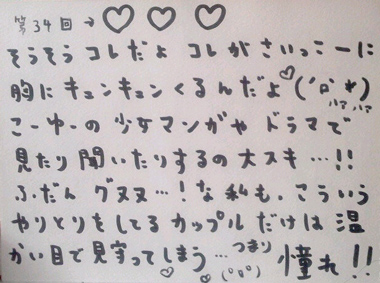 第34回→♡♡♡
そうそうコレだよ コレがさいっこーに
胸にキュンキュンくるんだよ♡(´Д`*)ハァハァ
こーゆーの少女マンガや ドラマで
見たり聞いたりするの大スキ…!!
ふだん グヌヌ…!な私も、こういう
やりとりをしてるカップルだけは温
かい目で見守ってしまう…つまり憧れ!!
♡♡(°o°)